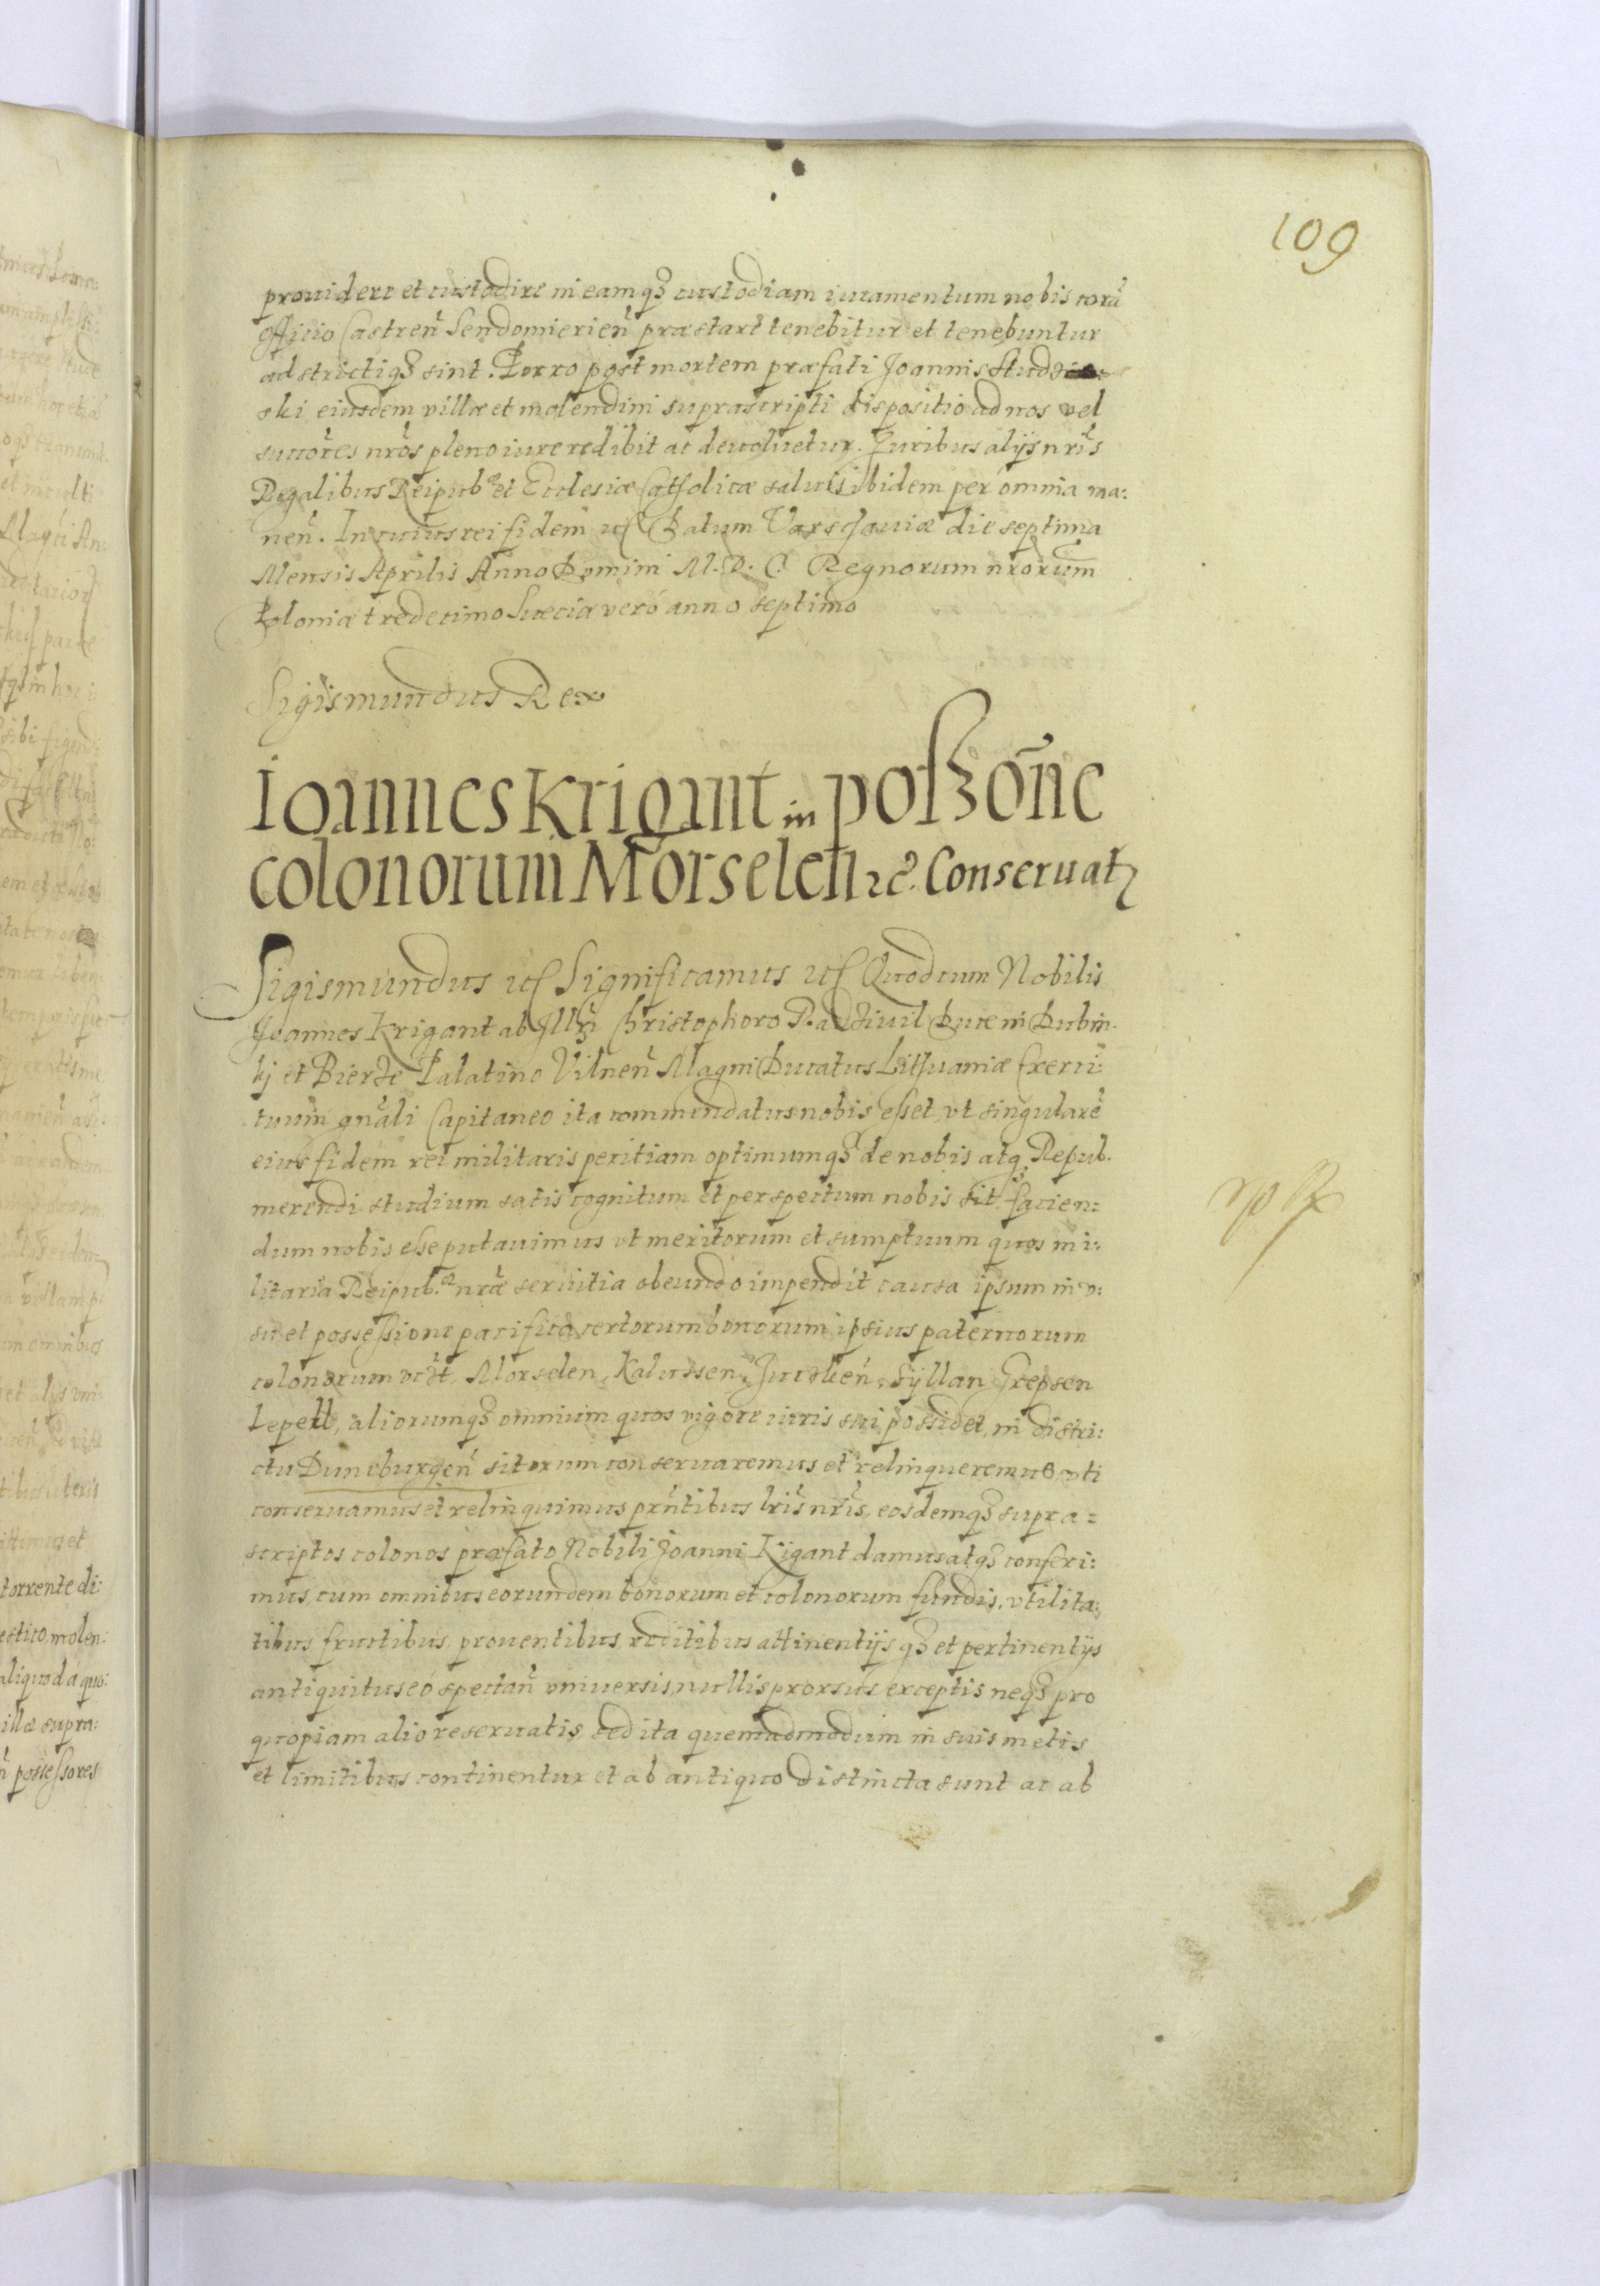 109
prouidere et custodire in eamq3 custodiam iuramentum nobis corã
officio Castreñ Sendomirieñ præstare tenebitur et tenebuntur
adstrictiq3 sint. Porro post mortem præfati Joannis Studzi
ski eiusdem villæ et molendini suprascripti dispositio ad nos vel
succõres nrõs pleno iure redibit ac deuoluetur. Juribus alijs nrĩs
Regalibus Reipub et Ecclesiæ Catholicæ saluis ibidem per omnia ma:
neñ. In cuius rei fidem etc Datum Varschauiæ die septima
Mensis Aprilis Anno Domini M.D.C. Regnorum nrõrum
Poloniæ tredecimo Sueciæ veró anno septimo
Sigismundus Rex
Ioannes Krigant in poss3õne
colonorum Morseleñ etc. Conseruatr
Sigismundus etc Significamus etc Quod cum Nobilis
Joannes Krigant ab Illri Christophoro Radziuil Duce in Dubin.
kj et Bierze Palatino Vilneñ Magni Ducatus Lithuaniæ Exerci:
tuum gnãli Capitaneo ita commendatus nobis esset, vt singularẽ
eius fidem rei militaris peritiam optimumq3 de nobis atq3 Repub.
merendi studium satis cognitum et perspectum nobis sit. facien:
dum nobis esse putauimus vt meritorum et sumptuum quos mi:
litaria Reipub. nræ seruitia obeundo impendit causa ipsum in v:
su et possessione pacifica certorum bonorum ipsius paternorum
colonorum vcz̃t, Morselen, Kalussen, Jucolień, Syllan Grepsen
Lepell, aliorumq3 omnium quos vigore iuris sui possidet, in distri:
ctu Duneburgeñ sitorum conseruaremus et relinqueremus, vti
conseruamus et relinquimus prñtibus lrĩs nrĩs, eosdemq3 supra=
scriptos colonos præfato Nobili Joanni Kigant damus atq3 conferi:
mus, cum omnibus eorundem bonorum et colonorum fundis, vtilita:
tibus fructibus, prouentibus reditibus attinentijs q3 et pertinentijs
antiquitus eó spectañ vniuersis, nullis prorsus exceptis neq3 pro
quopiam alio reseruatis, sed ita quemadmodum in suis metis
et limitibus continentur et ab antiquo distincta sunt ac ab